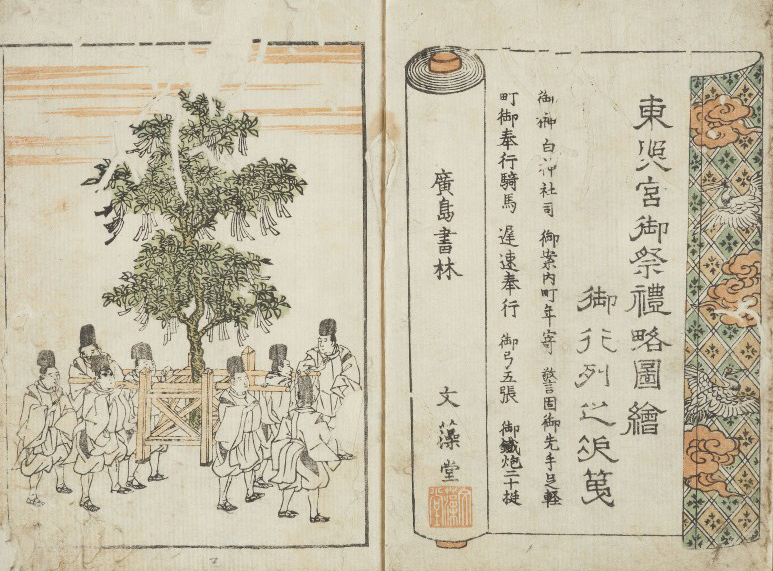 東照宮御祭禮略圖繪
御行列之次第
御榊 白神社司 御案内町年寄 警固御先手足軽
町御奉行騎馬 遅速奉行 御弓五張 御鐵炮二十挺
廣島書林 文藻堂